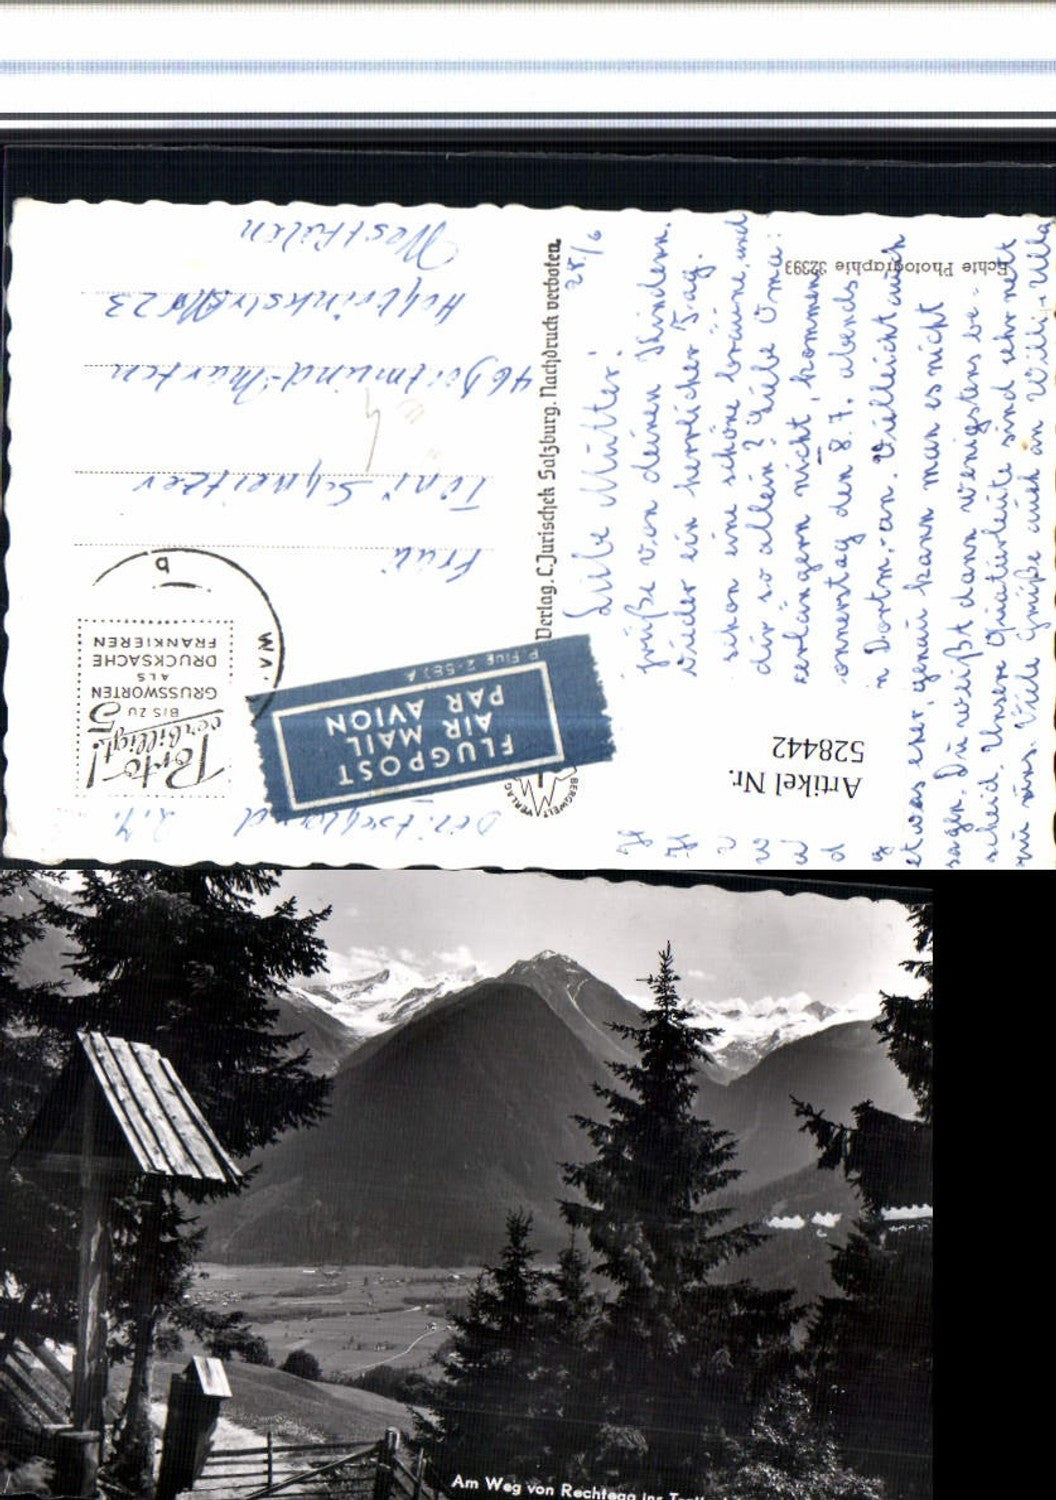 Liebe Mutter! 28/6
Grüße von deinen Kindern.
wieder ein herrlicher Tag.
schon eine schöne bräune, und
du so allein? Liebe Oma:
verlängern nicht, kommen
onnerstag den 8.7. abends
n Dortm. an. Vielleicht auch
etwas eher, genau kann man es nicht
sagen. Du weißt dann wenigstens be-
scheid. Unsere Quatierleute sind sehr nett
zu uns. Viele Grüße auch an Willi + Ulla
Echte Photographie 32393
Artikel Nr.
528442
Verlag. C. Jurischek Salzburg. Nachdruck verboten.
BERGWELT VERLAG
FLUGPOST
AIR MAIL
PAR AVION
Porto-!
verbilligt!
BIS ZU 5
GRUSSWORTEN
ALS
DRUCKSACHE
FRANKIEREN
b
Frau
Toni Schweitzer
46 Dortmund-Marten
23
Westfalen
Deutschland
Am Weg von Rechtegg ins